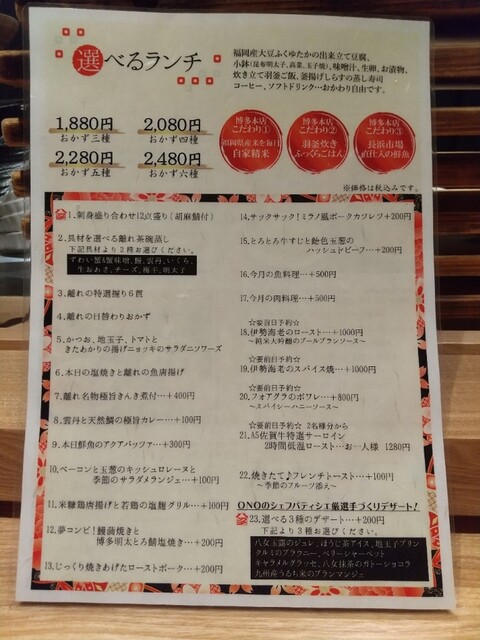 選べるランチ
福岡産大豆ふくゆたかの出来立て豆腐、
小鉢(昆布明太子、高菜、玉子焼)、味噌汁、生卵、お漬物、
炊き立て羽釜ご飯、釜揚げしらすの蒸し寿司
コーヒー、ソフトドリンク…おかわり自由です。
1,880円
おかず三種
2,080円
おかず四種
2,280円
おかず五種
2,480円
おかず六種
博多本店
こだわり①
福岡県産米を毎日
自家精米
博多本店
こだわり②
羽釜炊き
ふっくらごはん
博多本店
こだわり③
長浜市場
直仕入の鮮魚
※価格は税込みです。
1.刺身盛り合わせ12点盛り(胡麻鯖付)
2.具材を選べる離れ茶碗蒸し
下記具材より2種お選びください。
ずわい蟹&蟹味噌、鰻、雲丹、いくら、
生あおさ、チーズ、梅干、明太子
3.離れの特選握り6貫
4.離れの日替わりおかず
5.かつお、地玉子、トマトと
きたあかりの揚げニョッキのサラダニソワーズ
6.本日の塩焼きと離れの魚唐揚げ
7.離れ名物極旨きんき煮付…+400円
8.雲丹と天然鯛の極旨カレー…+100円
9.本日鮮魚のアクアパッツァ…+300円
10.ベーコンと玉葱のキッシュロレーヌと
季節のサラダメランジェ…+100円
11.米糠鶏唐揚げと若鶏の塩麹グリル…+100円
12.夢コンビ!鰻蒲焼きと
博多明太とろ鯖塩焼き…+200円
13.じっくり焼きあげたローストポーク…+200円
14.サックサック!ミラノ風ポークカツレツ+200円
15.とろとろ牛すじと飴色玉葱の
ハッシュドビーフ…+200円
16.今月の魚料理…+500円
17.今月の肉料理…+500円
☆要前日予約☆
18.伊勢海老のロースト…+1000円
~純米大吟醸のブールブランソース~
☆要前日予約☆
19.伊勢海老のスパイス焼…+1000円
☆要前日予約☆
20.フォアグラのポワレ…+800円
~スパイシーハニーソース~
☆要前日予約☆ 2名様分から
21.A5佐賀牛特選サーロイン
2時間低温ロースト…お一人様 1280円
22.焼きたて♪フレンチトースト…+100円
~季節のフルーツ添え~
ONOのシェフパティシエ厳選手づくりデザート!
23.選べる3種のデザート…+200円
下記より3種お選びください。
八女玉露のジュレ、ほうじ茶アイス、地玉子プリン
クルミのブラウニー、ベリーシャーベット
キャラメルグラッセ、八女抹茶のガトーショコラ
九州産うるち米のブランマンジェ